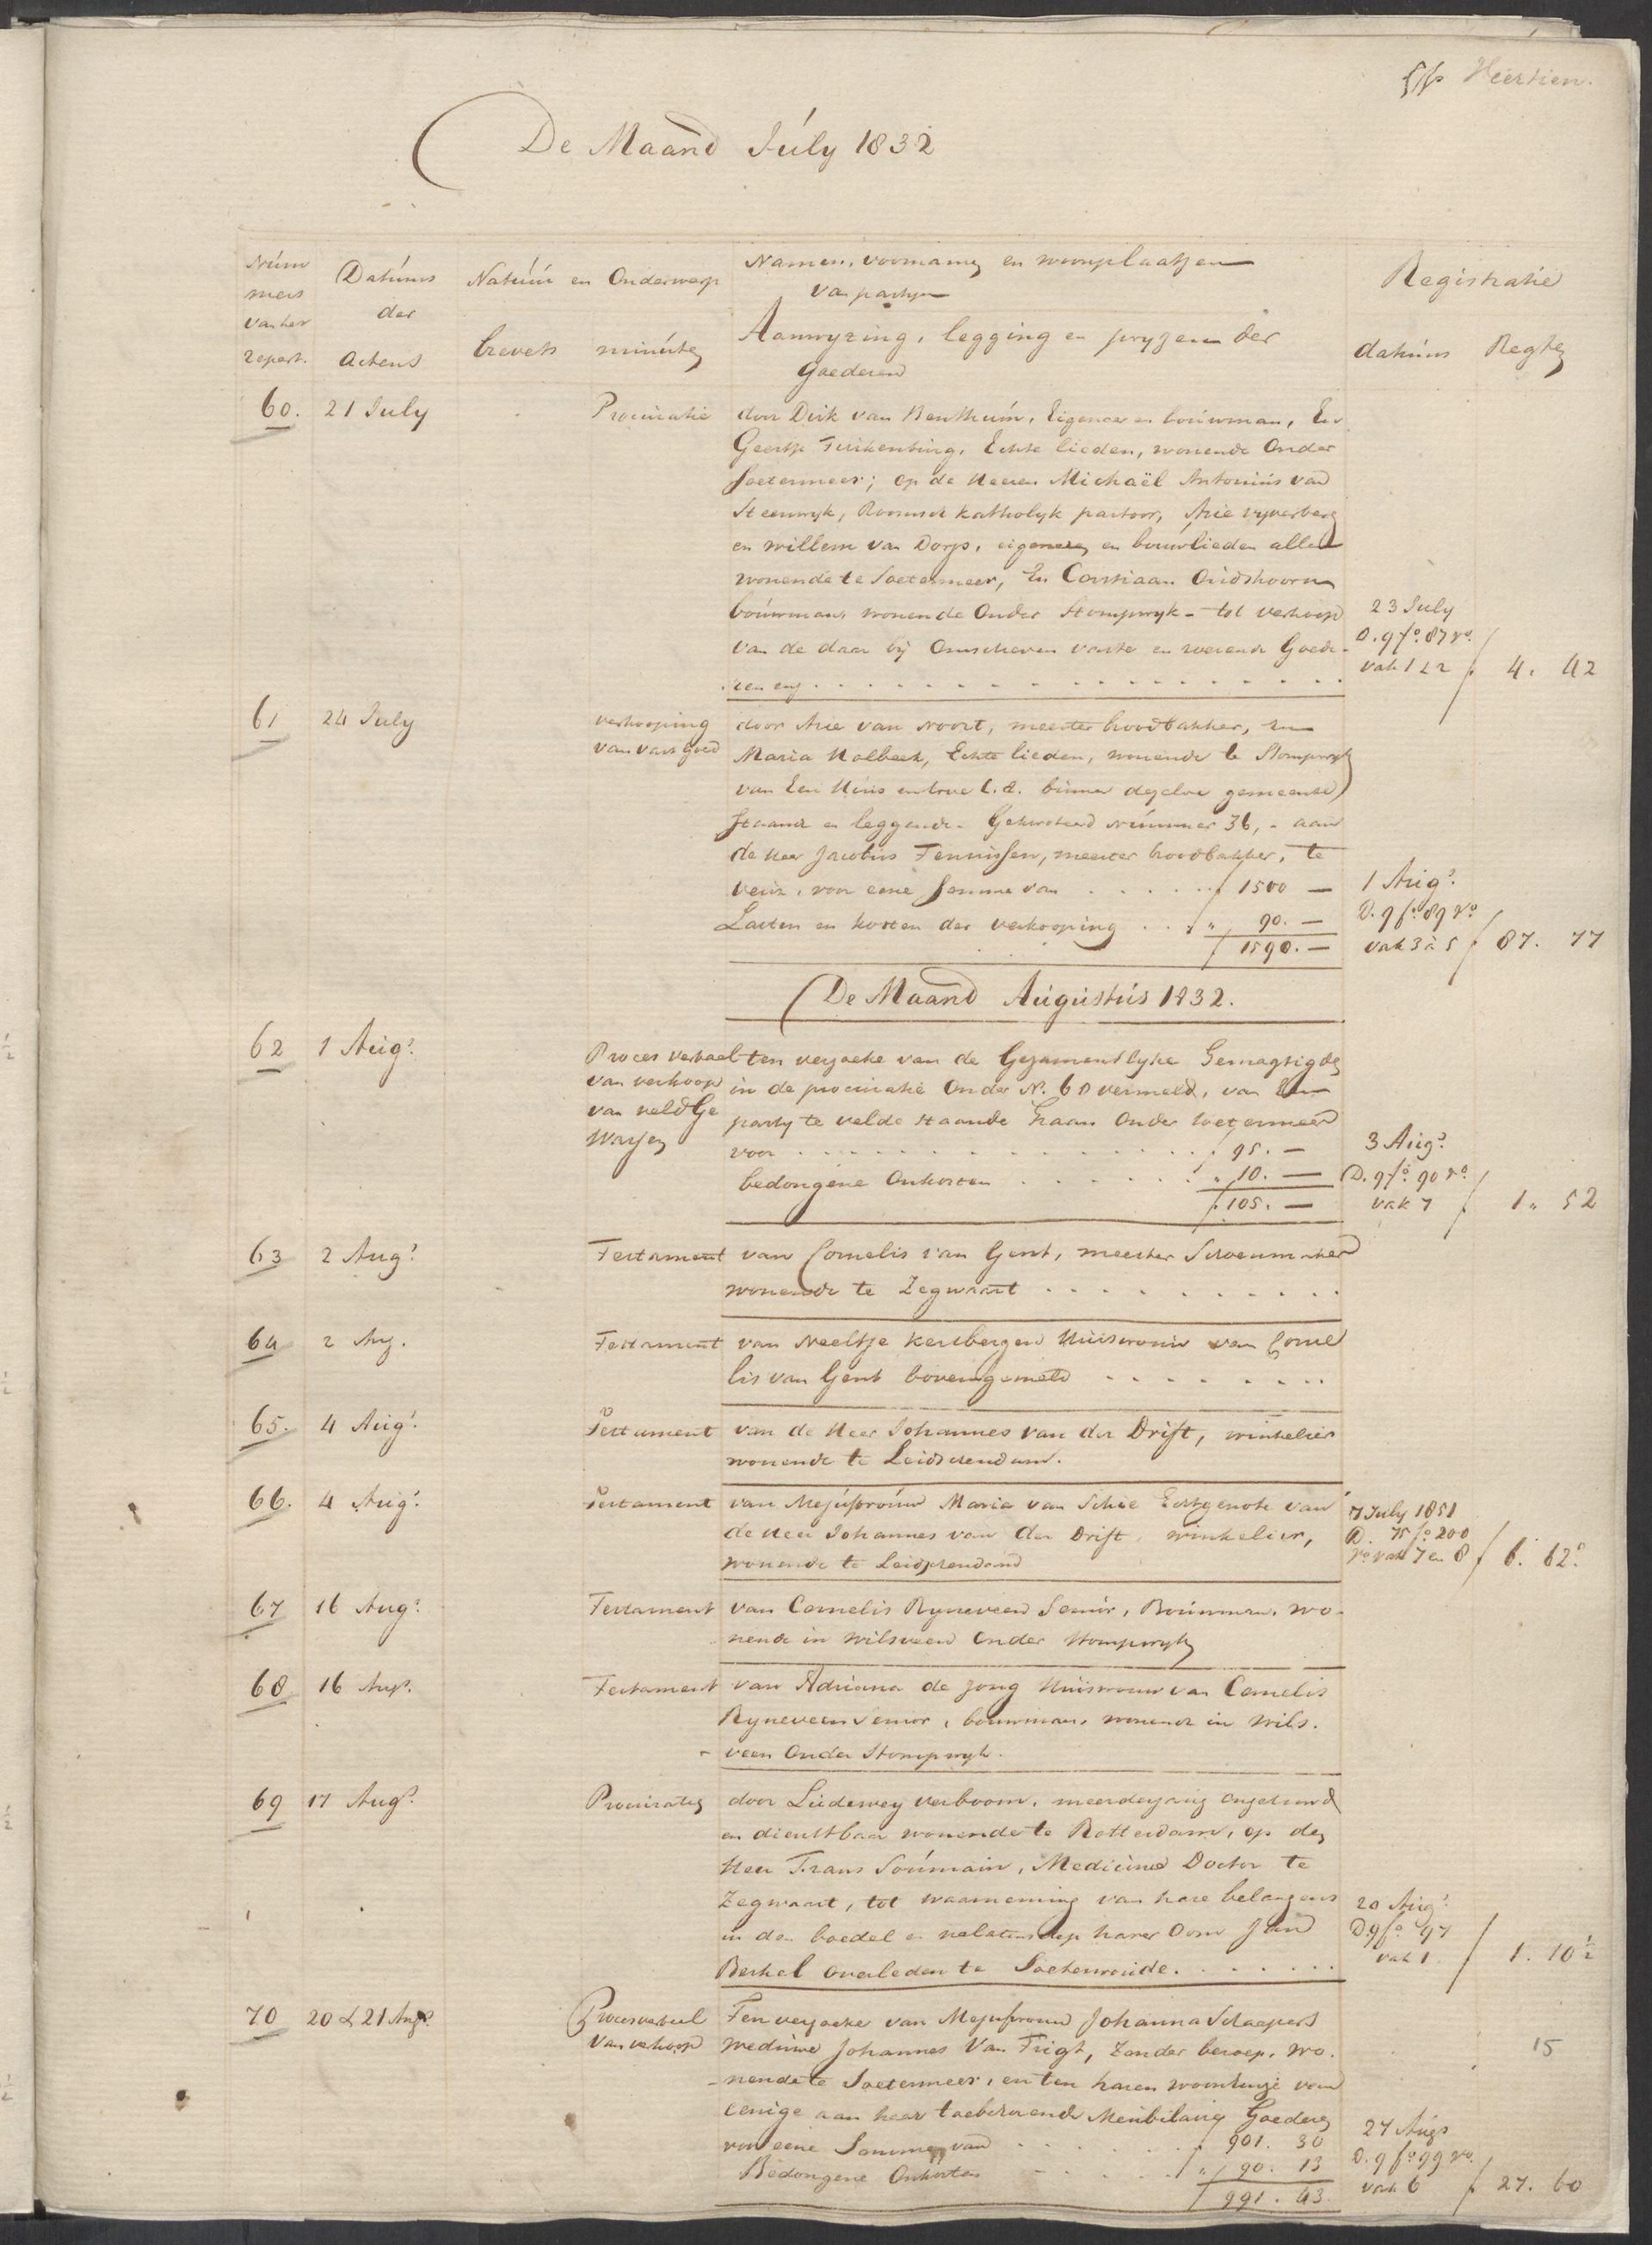 Veertien.
De Maand July 1832
Num
mers
van het
repert.
Datums
der
Actens
Natuur en Onderwerp
brevets minuten
Namen, voornamen en woonplaatsen
van partyen
Aanwyzing, legging en pryzen der
Goederen
Registratie
datums Regten
60. 21 July Procuratie door Dirk van Benthum, Eigenaar en bouwman, En
Geertje Turkenburg, Echte lieden, wonende Onder
Soetermeer; op de Heeren Michaël Antonius van
Steenwyk, Roomsch katholyk pastoor, Arie vyverberg
en willem van Dorp, eigenaren en bouwlieden allen
wonende te Soetermeer, En Corstiaan Oudshoorn
bouwman, wonende Onder Stompwyk - tot verkoop
van de daar bij Omschreven vaste en roerende Goede-
ren enz.
23 July
D. 9 fo. 87 ro.
vak 1 & 2 f 4. 42
61 24 July verkooping
van vast goed
door Arie van noort, meester broodbakker, en
Maria Nolbeek, Echte lieden, wonende te Stompwyk
van Een Huis en Erve C.A. binnen dezelve gemeente
staande en leggende. Gekwoteerd nummer 36, - aan
de Heer Jacobus Tennissen, meester broodbakker, te
veur, voor eene Somme van f 1500 —
Lasten en kosten der verkooping " 90. —
f 1590. —
1 Augs.
D. 9 fo. 89 vo
vak 3 à 5 f 87. 77
De Maand Augustus 1832.
62 1 Augs. Proces verbaal
van verkoop
van veldGe
wassen
ten verzoeke van de Gezamentlyke Gemagtigde
in de procuratie Onder No. 60 vermeld, van Een
party te velde staande Graan Onder Soetermeer
voor f 95. —
bedongene Onkosten " 10. —
f 105. —
3 Augs.
D. 9 fo. 90 ro.
vak 7 f 1 " 52
63 2 Augs. Testament van Cornelis van Gent, meester Schoenmaker
wonende te Zegwaart
64 2 Aug. Testament van Neeltje Kersbergen Huisvrouw van Corne
lis van Gent bovengemeld
65. 4 Augs. Testament van de Heer Johannes van der Drift, winkelier
wonende te Leidschendam.
66. 4 Augs. Testament van Mejufvrouw Maria van Schie Echtgenote van
de Heer Johannes van der Drift, winkelier,
wonende te Leidschendam
7 July 1851
D. 75 fo 200
ro. vak 7 en 8 f 6. 62
67 16 Augs. Testament van Cornelis Ryneveen Senior, Bouwman, wo-
nende in wilsveen Onder Stompwyk
68 16 Augs. Testament van Adriana de Jong Huisvrouw van Cornelis
Ryneveen Senior, bouwman, wonende in Wils-
veen Onder Stompwyk.
69 17 Augs. Procuratie door Liedewey verboom, meerderjarig ongehuwd
en dienstbaar wonende te Rotterdam, op den
Heer Frans Soumain, Medicine Doctor te
Zegwaart, tot waarneming van hare belangens
in den boedel en nalatenschap harer Oom Jan
Berkel overleden te Soeterwoude.
20 Augs.
D 9 fo 97
vak 1 f 1. 10 1/2
70 20 & 21 Augs. Procesverbaal
van verkoop
Ten verzoeke van Mejufvrouw Johanna Schaepers
weduwe Johannes Van Trigt, Zonder beroep, wo-
nende te Soetermeer, en ten haren woonhuize van
eenige aan haar toebehorende Meubilaire Goederen
voor eene Somme van f 901. 30
Bedongene Onkosten " 90. 13
f 991. 43.
15
27 Augs
D. 9 fo 99 vo.
vak 6 f 27. 60